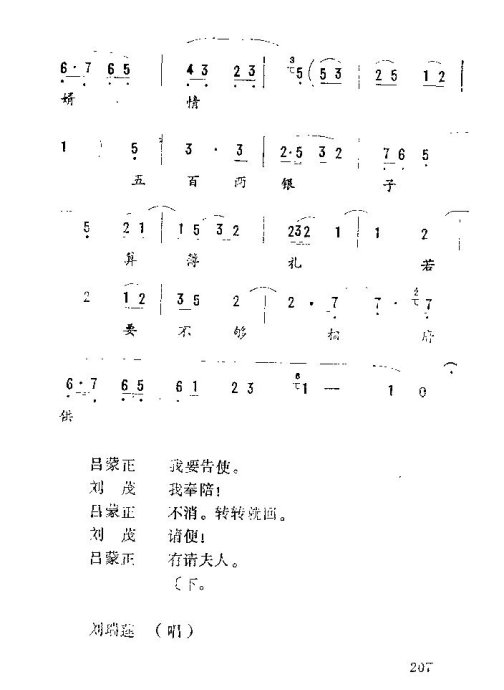 6·7 6 5 | 4 3 2 3 | 5 (5 3 | 2 5 1 2 |
婿 情
1 ) 5 | 3 · 3 | 2·5 3 2 | 7 6 5
五 百 两 银 子
5 2 1 | 1 5 3 2 | 232 1 | 1 2
算 薄 礼 若
2 1 2 | 3 5 2 | 2 · 7 | 7 · 7
要 不 够 相 府
6·7 6 5 | 6 1 2 3 | 1 — | 1 0
供
吕蒙正 我要告便。
刘 茂 我奉陪!
吕蒙正 不消。转转就回。
刘 茂 请便!
吕蒙正 有请夫人。
〔下。
刘瑞莲 (唱)
207